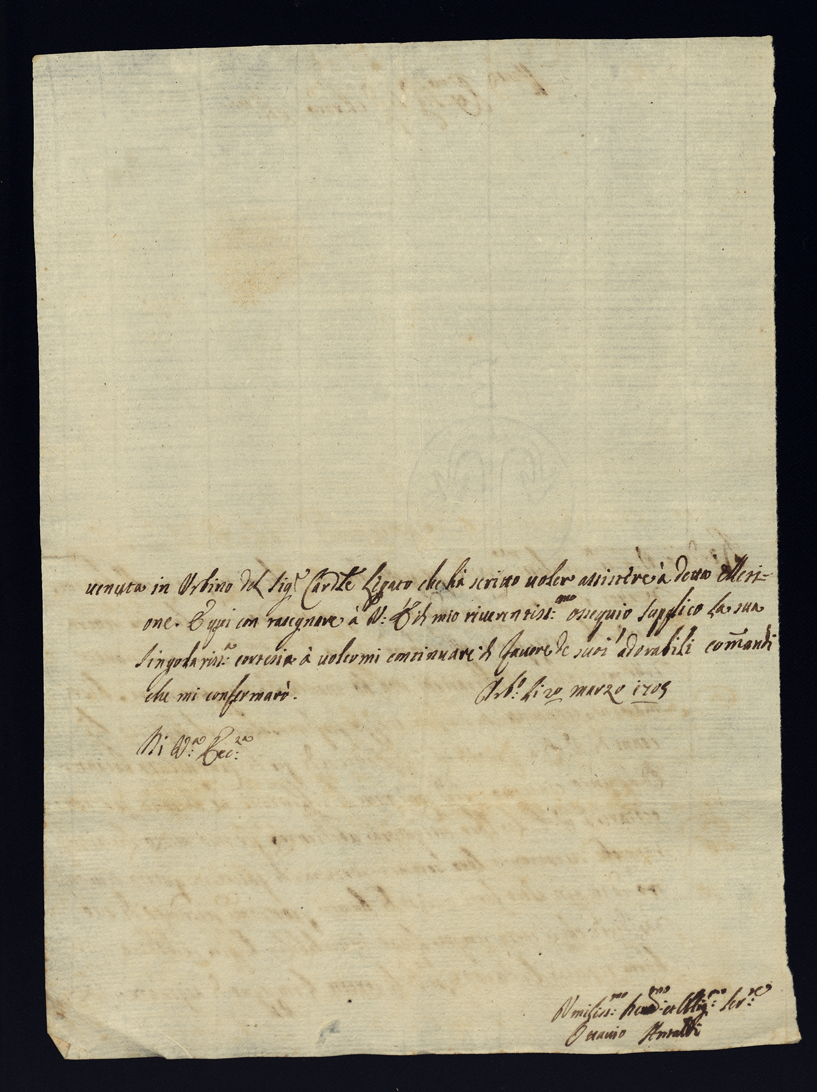 venuta in Urbino del Sig:r Card:le Legato che hà scritto voler assistere à detta Elezi=
one. E qui con rasegnare à V: E: il mio riverentiss:mo ossequio supplico la sua
singolariss:a cortesia à volermi continuare il favore de suoi adorabili comandi
che mi confermarò. Urb:o li 20 marzo 1705
Di V:ra Ecc:za
Umiliss:mo Dev:mo et Oblig:mo Ser:re
Ottavio Antaldi